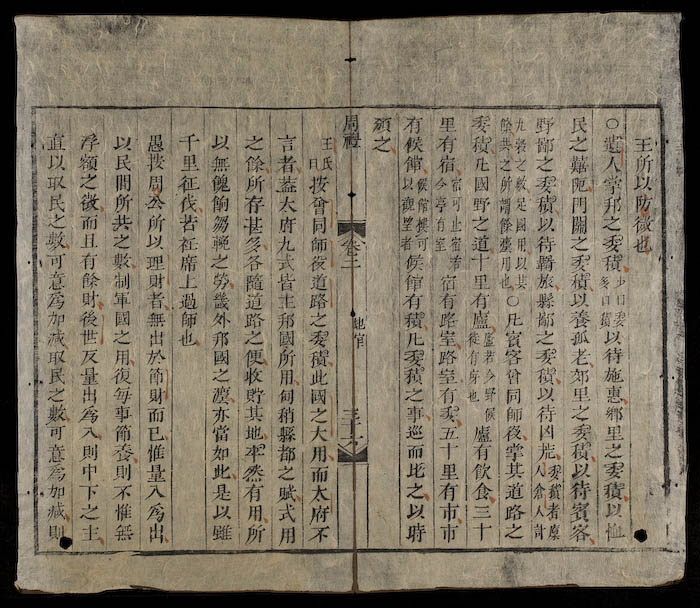 王所以防微也
○遺人掌邦之委積少曰委多曰積以待施惠鄉里之委積以恤
民之囏阨門關之委積以養孤老郊里之委積以待賓客
野鄙之委積以待羇旅縣鄙之委積以待凶荒委積者廩人倉人計
九穀之數足國用以其餘共之所謂餘灋用也○凡賓客會同師役掌其道路之
委積凡國野之道十里有廬廬若今野候徙有庌也廬有飲食三十
里有宿宿可止宿若今亭有室宿有路室路室有委五十里有市市
有候館候館樓可以觀望者候館有積凡委積之事巡而比之以時
頒之
周禮 卷二 地官
王氏曰按會同師役道路之委積此國之大用而太府不
言者蓋太府九式皆主邦國所用甸稍縣都之賦式用
之餘所存甚多各隨道路之便收貯其地卒然有用所
以無餽餉芻輓之勞畿外邦國之廩亦當如此是以雖
千里征伐若袵席上過師也
愚按周公所以理財者無出於節財而已惟量入為出
以民間所共之數制軍國之用復每事節養則不惟無
浮額之徵而且有餘財後世反量出為入則中下之主
直以取民之數可意為加減取民之數可意為加減則